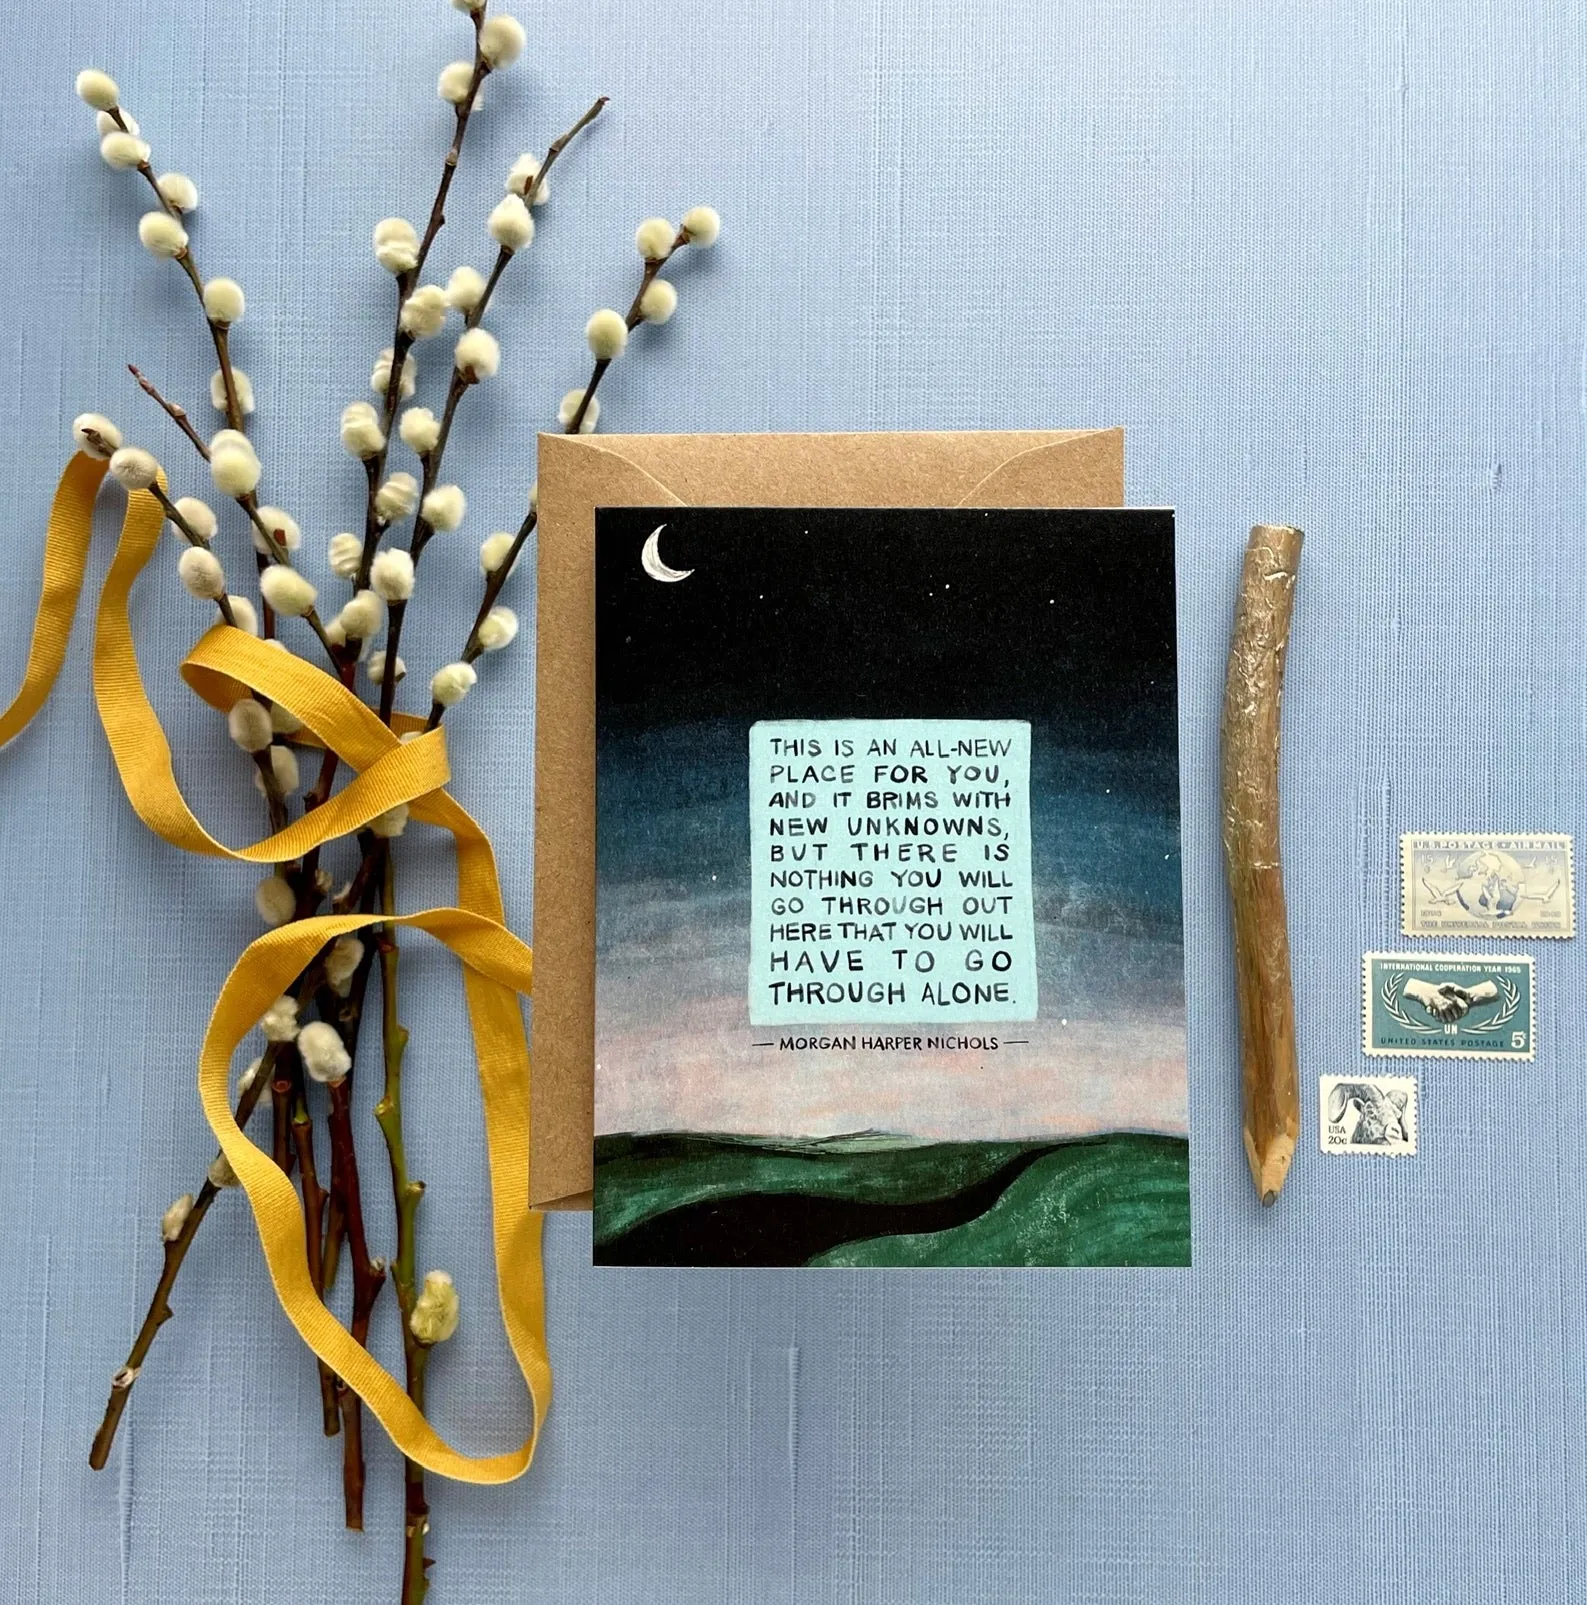 THIS IS AN ALL-NEW
PLACE FOR YOU,
AND IT BRIMS WITH
NEW UNKNOWNS,
BUT THERE IS
NOTHING YOU WILL
GO THROUGH OUT
HERE THAT YOU WILL
HAVE TO GO
THROUGH ALONE.
— MORGAN HARPER NICHOLS —
U.S. POSTAGE • AIRMAIL
15 15
THE UNIVERSAL POSTAL UNION
INTERNATIONAL COOPERATION YEAR 1965
UN
UNITED STATES POSTAGE 5¢
USA
20c